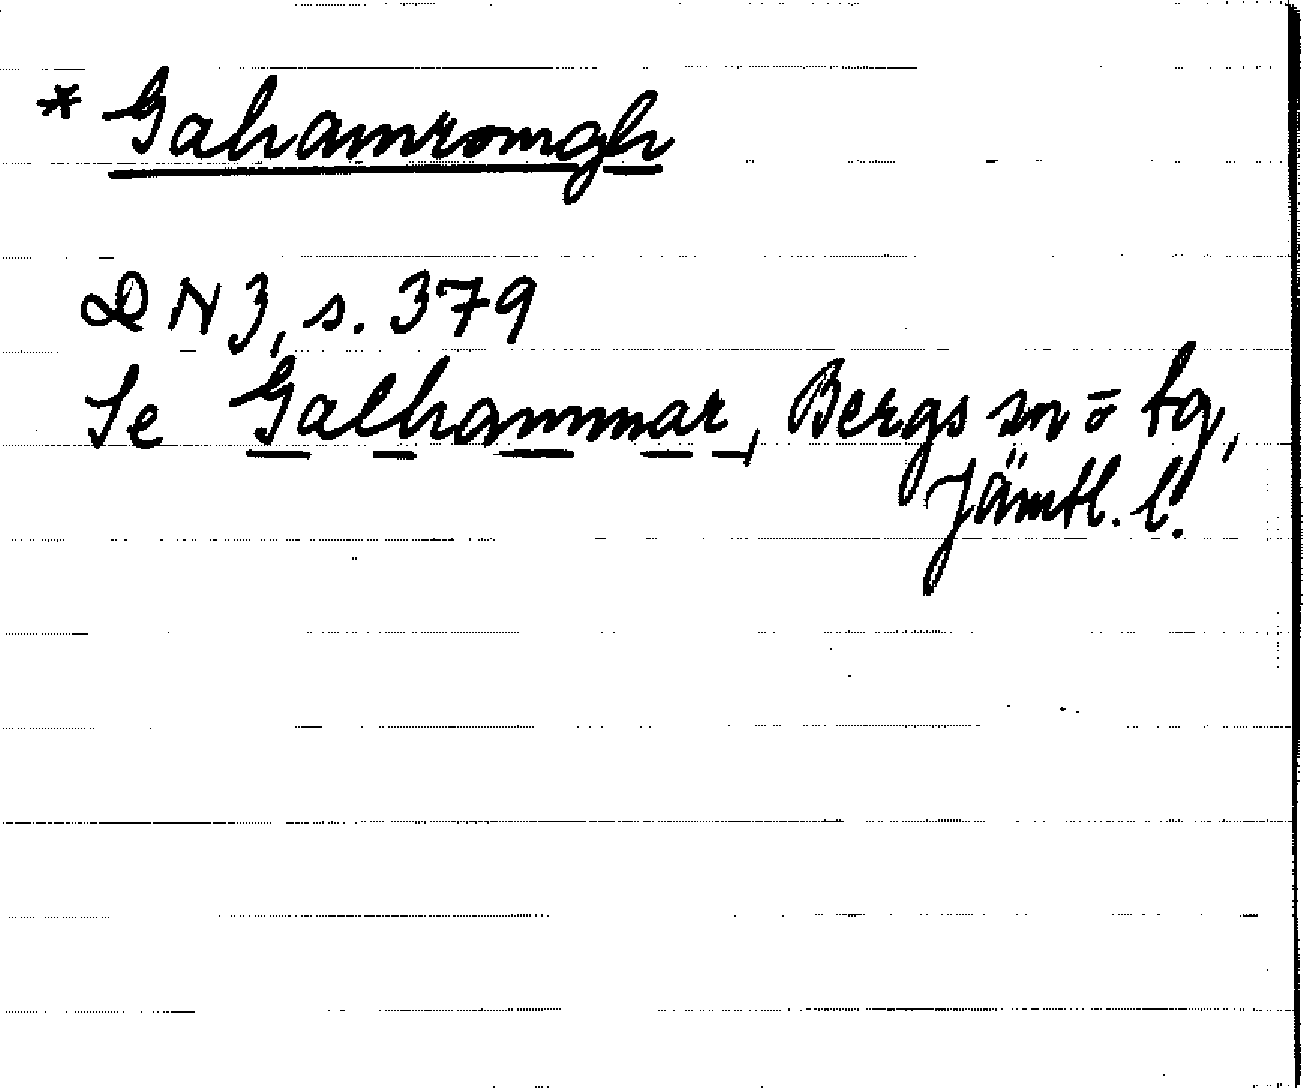 * Gahamromgh
DN 3, s. 379
Se Galhammar, Bergs sn ō tg,
Jämtl. l.